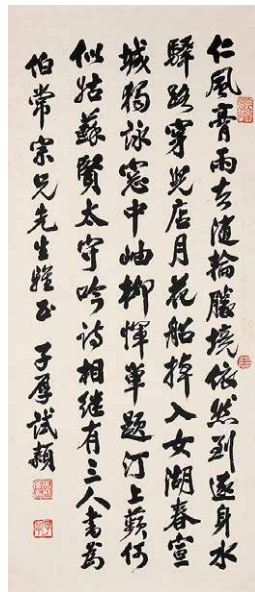 仁風膏雨去随輪勝境依然到逐身水
驛路穿兒店月花船棹入女湖春宣
城獨詠窓中岫柳惲單題汀上蘋何
似姑蘇賢太守吟詩相継有三人書爲
伯常宗兄先生雅正 子厚試穎